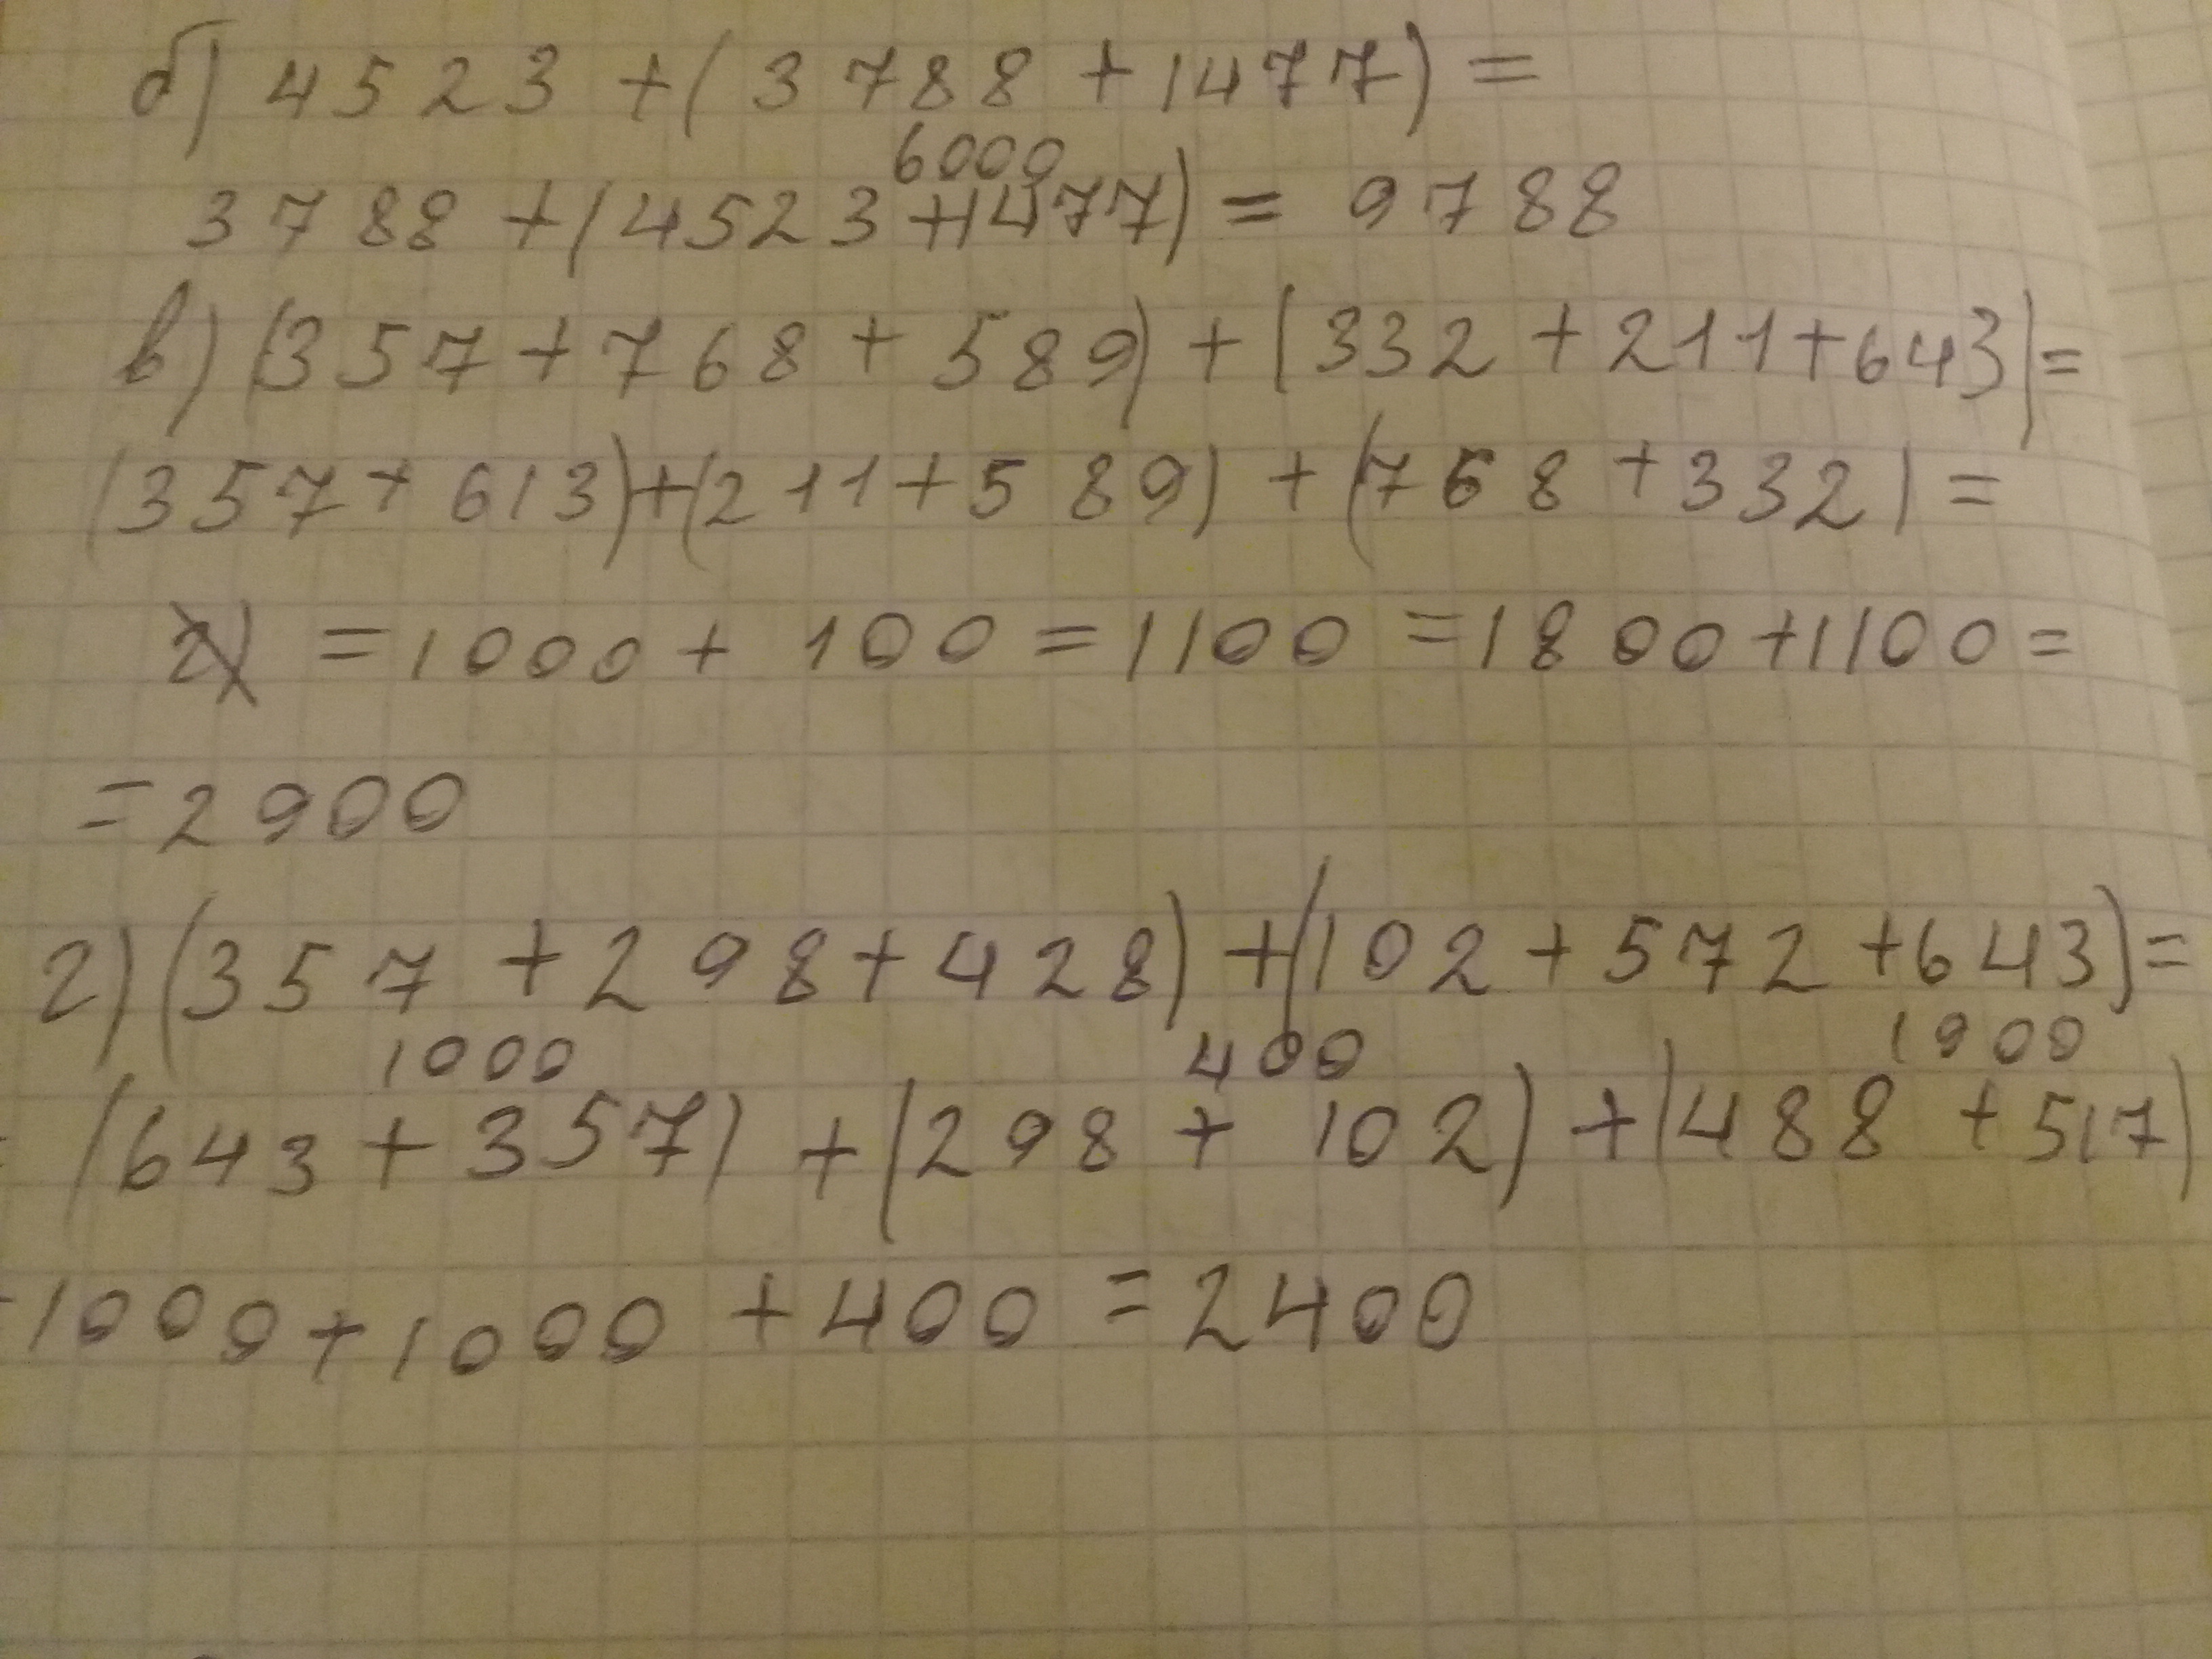 б) 4523 + (3788 + 1477) =
6000
3788 + (4523 + 1477) = 9788
в) (357 + 768 + 589) + (332 + 211 + 643) =
(357 + 613) + (211 + 589) + (768 + 332) =
= 1000 + 100 = 1100 = 1800 + 1100 =
= 2900
г) (357 + 298 + 428) + (102 + 572 + 643) =
1000 400 1000
= (643 + 357) + (298 + 102) + (488 + 517)
- 1000 + 1000 + 400 = 2400